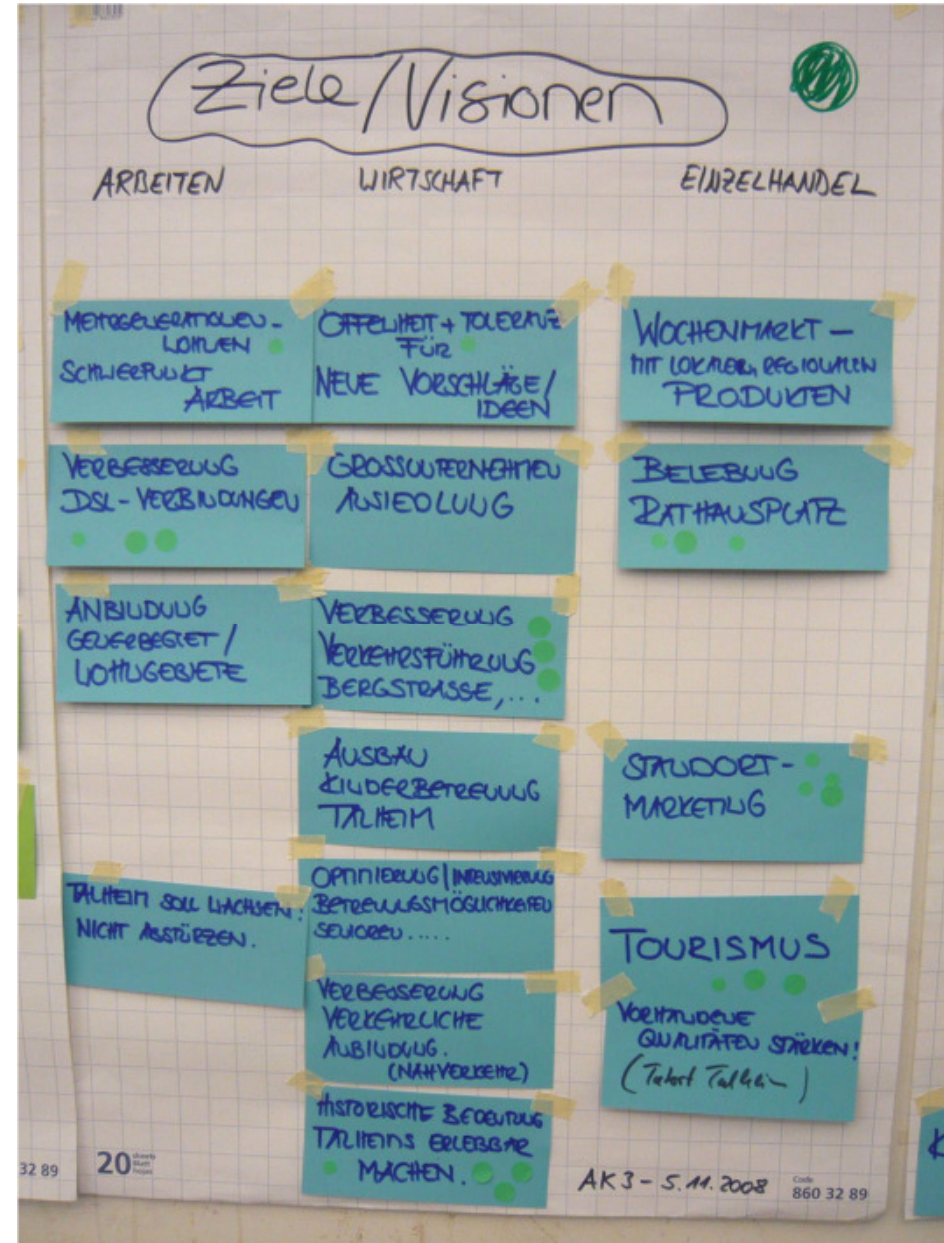 Ziele/Visionen
ARBEITEN
WIRTSCHAFT
EINZELHANDEL
MEHRGENERATIONEN-
WOHNEN
SCHWERPUNKT
ARBEIT
VERBESSERUNG
DSL-VERBINDUNGEN
ANBINDUNG
GEWERBEGIET/
WOHNGEBIETE
TALHEIM SOLL WACHSEN!
NICHT ABSTÜRZEN.
OFFENHEIT + TOLERANZ
FÜR
NEUE VORSCHLÄGE/
IDEEN
GROSSUNTERNEHMEN
ANSIEDLUNG
VERBESSERUNG
VERKEHRSFÜHRUNG
BERGSTRASSE,...
AUSBAU
KINDERBETREUUNG
TALHEIM
OPTIMIERUNG/INTENSIVIERUNG
BETREUUNGSMÖGLICHKEITEN
SENIOREN.....
VERBESSERUNG
VERKEHRLICHE
ANBINDUNG.
(NAHVERKEHR)
HISTORISCHE BEDEUTUNG
TALHEIMS ERLEBBAR
MACHEN.
WOCHENMARKT –
MIT LOKALEN, REGIONALEN
PRODUKTEN
BELEBUNG
RATHAUSPLATZ
STANDORT-
MARKETING
TOURISMUS
VORHANDENE
QUALITÄTEN STÄRKEN!
(Tatort Talheim)
32 89
20
Blatt
AK3 – 5.11.2008
Code
860 32 89